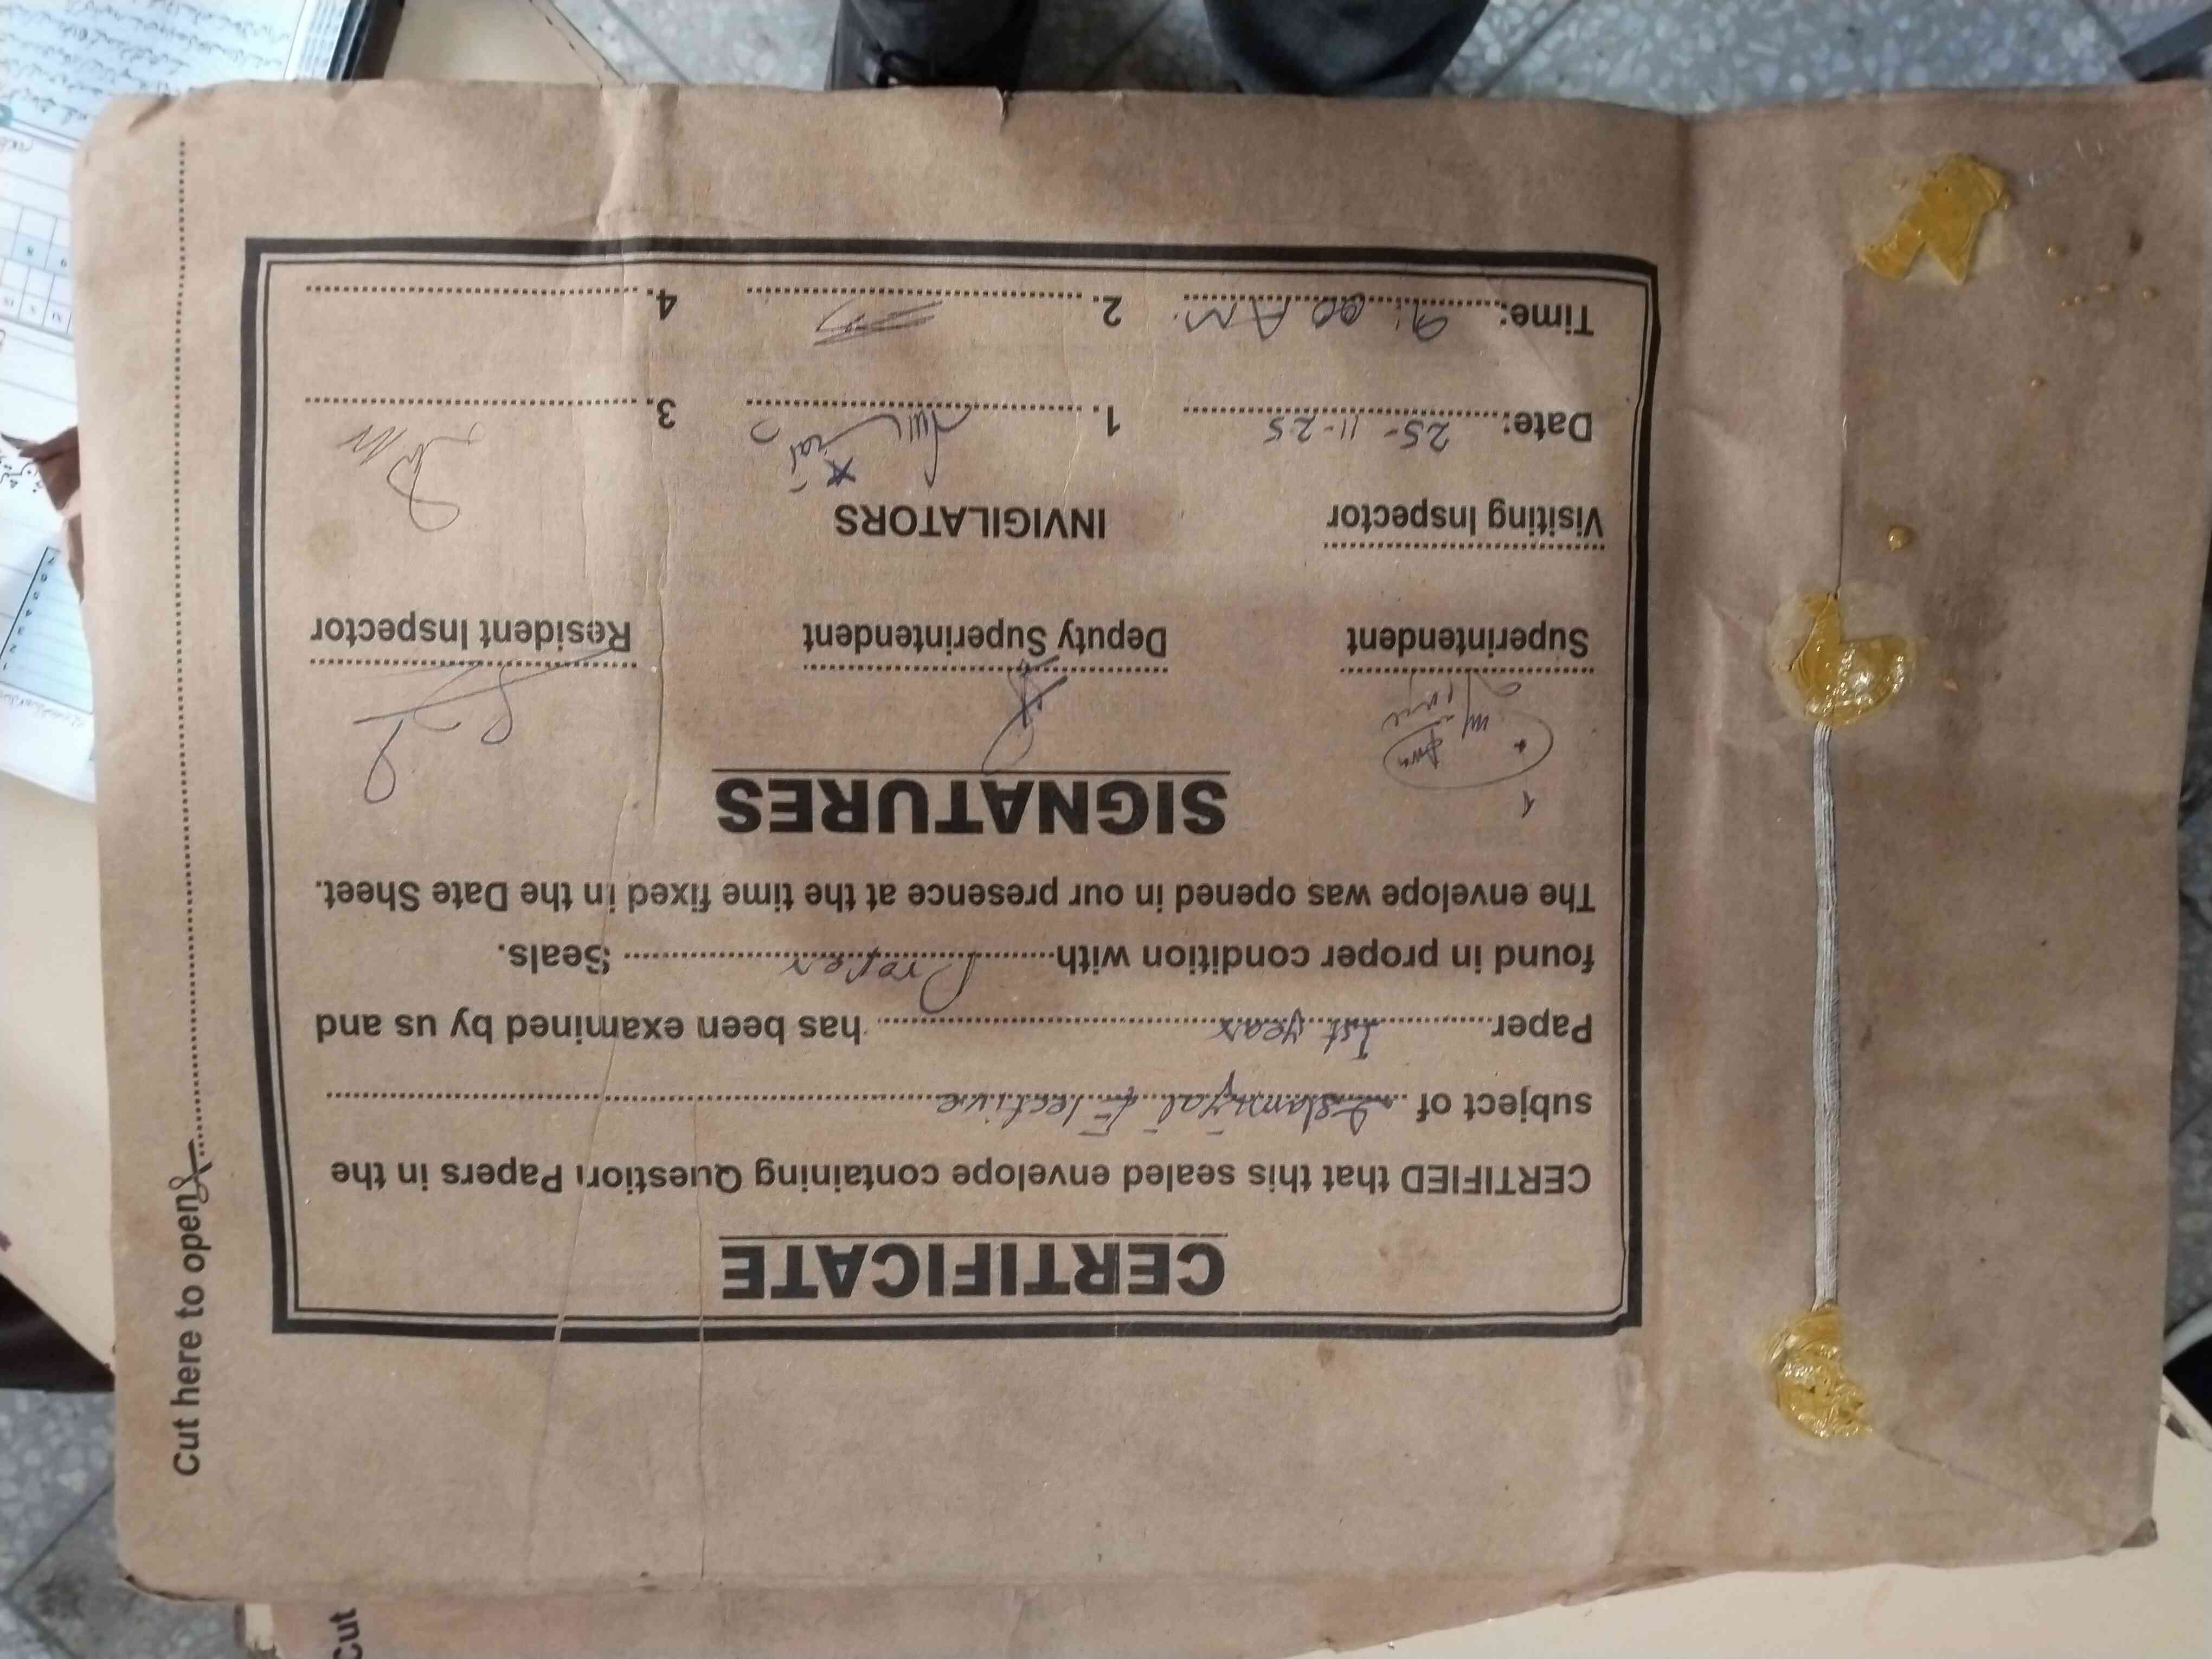 CERTIFICATE
CERTIFIED that this sealed envelope containing Question Papers in the
subject of Islamiyat Elective
Paper 1st year has been examined by us and
found in proper condition with Proper Seals.
The envelope was opened in our presence at the time fixed in the Date Sheet.
SIGNATURES
Superintendent Deputy Superintendent Resident Inspector
Visiting Inspector INVIGILATORS
Date: 25-11-25 1. 3.
Time: 9:00 AM. 2. 4.
Cut here to open
Cut